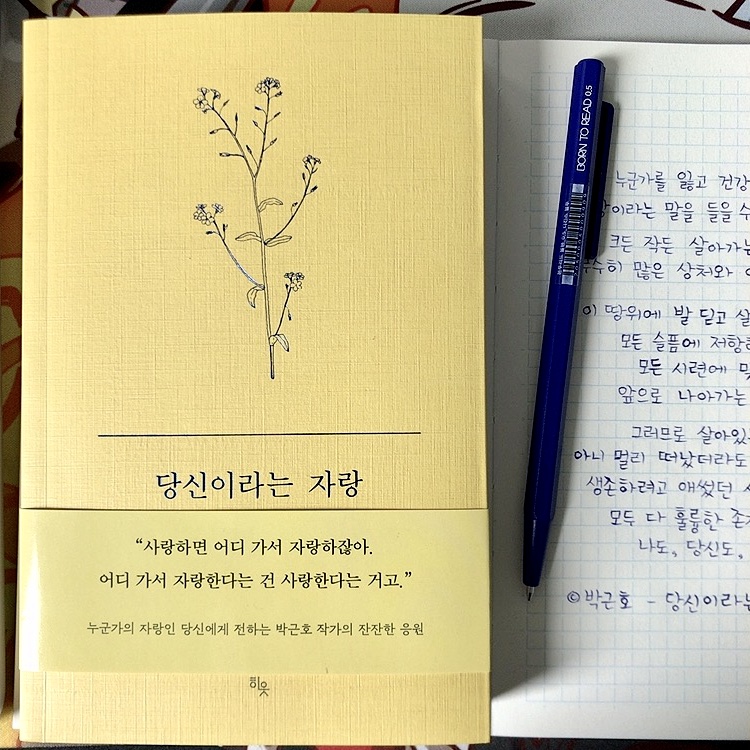 당신이라는 자랑
“사랑하면 어디 가서 자랑하잖아.
어디 가서 자랑한다는 건 사랑한다는 거고.”
누군가의 자랑인 당신에게 전하는 박근호 작가의 잔잔한 응원
히읏
BORN TO READ 0.5
누군가를 잃고 건강
이라는 말을 들을 수
크든 작든 살아가는
많은 상처와
이 땅위에 발 딛고 살
모든 슬픔에 저항하
모든 시련에 맞
앞으로 나아가는
그러므로 살아있
아니 멀리 떠났더라도
생존하려고 애썼던
모두 다 훌륭한 존재
나도, 당신도,
©박근호 - 당신이라는